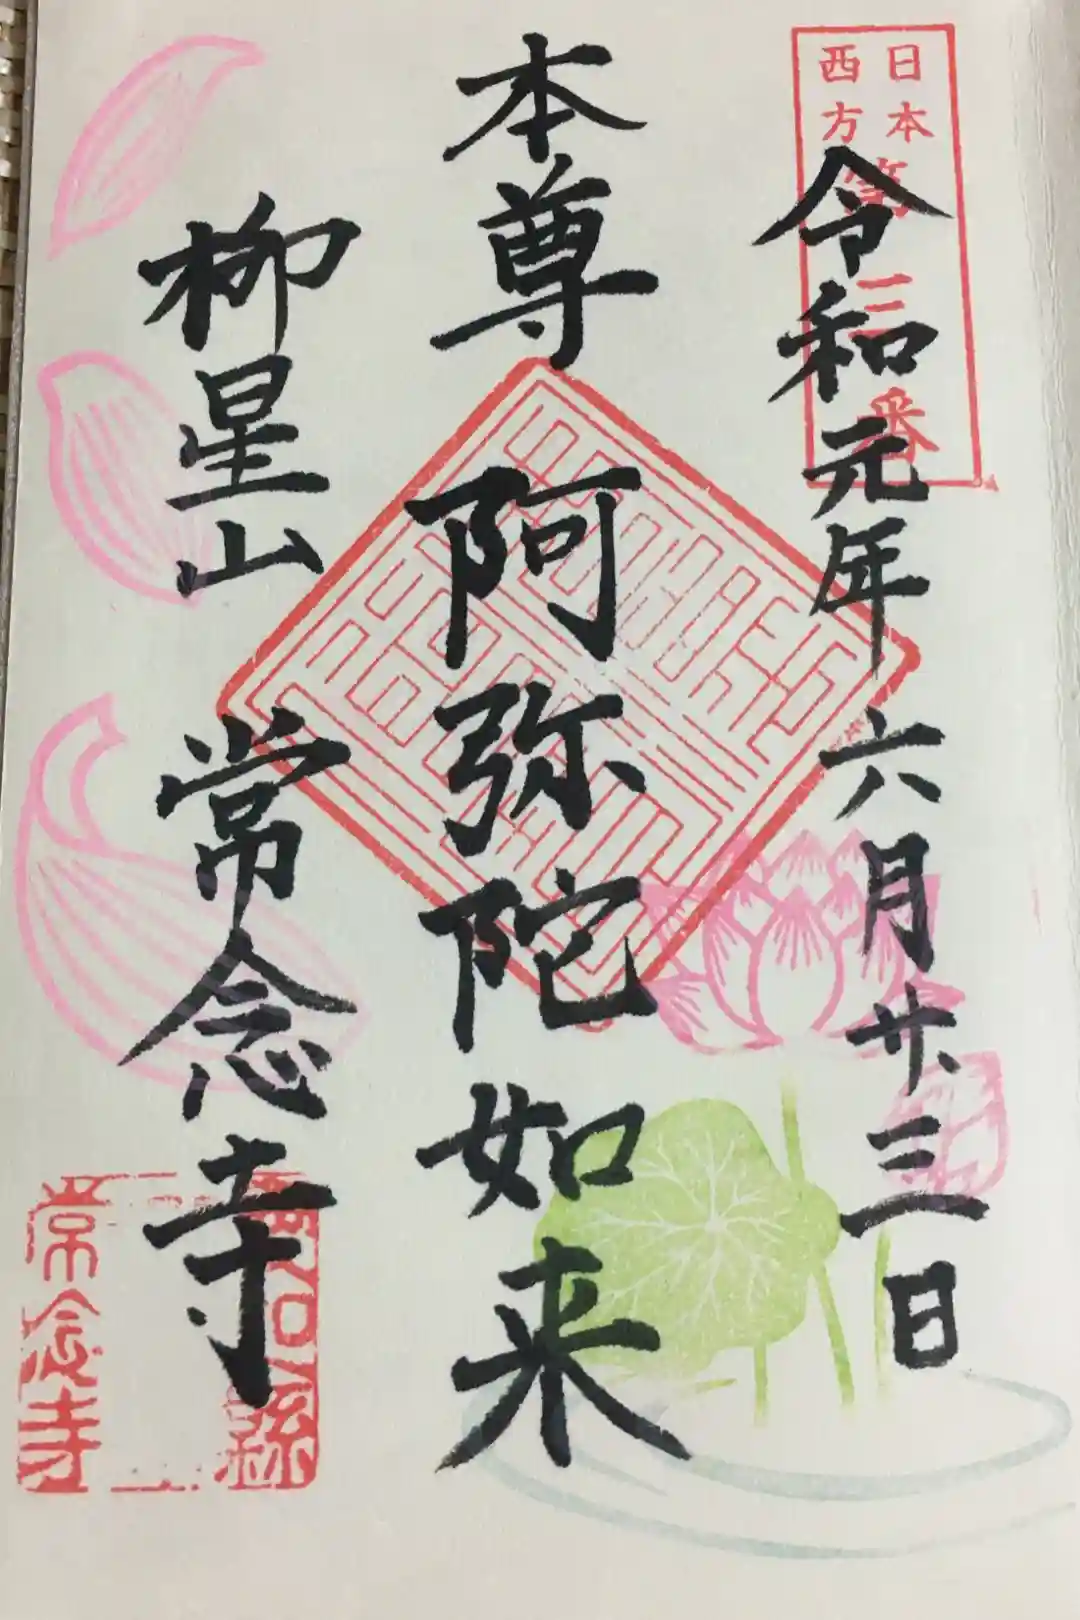 日本
西方
第三番
令和元年 六月廿三日
本尊 阿弥陀如来
柳星山 常念寺
常念寺